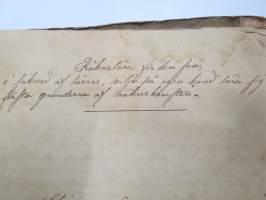 Räknelära för den som,
i saknad af lärare, vilja på egen hand lära sig
första grunderna af räknekonsten.